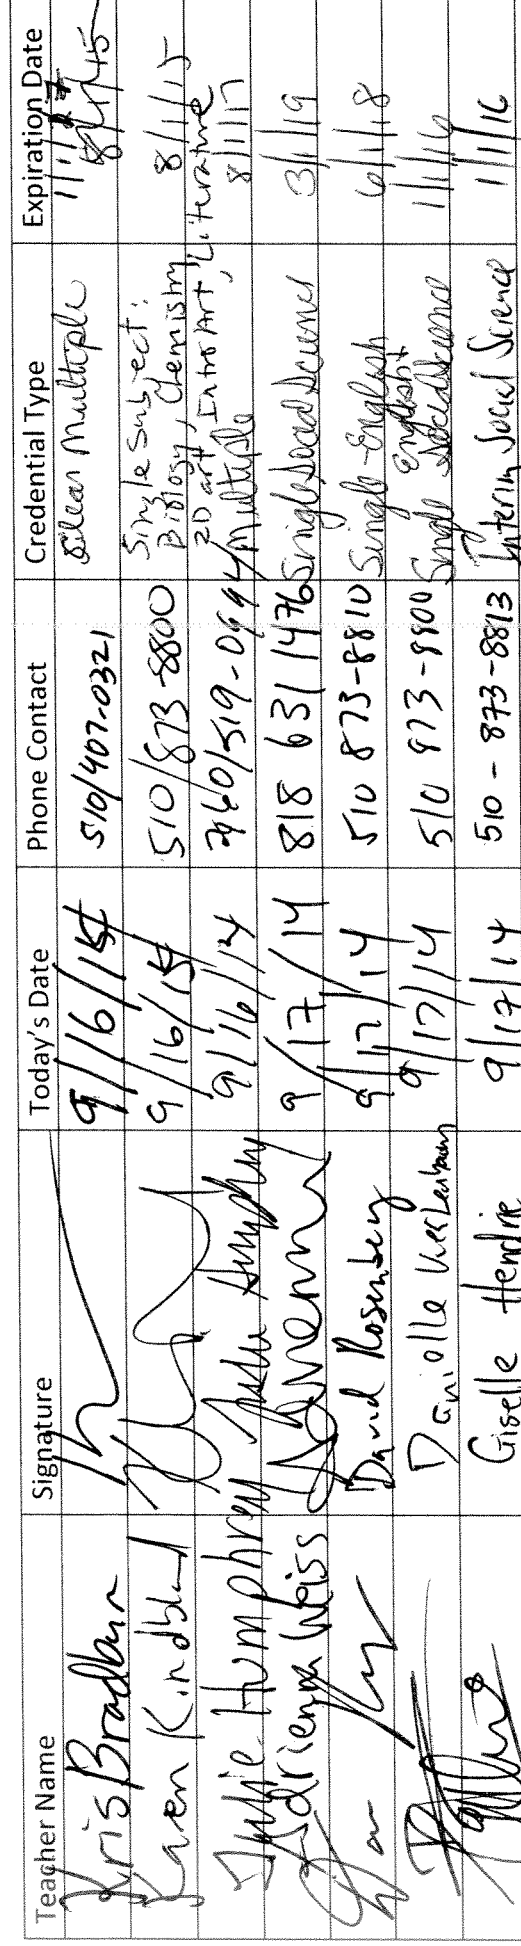 Teacher Name Signature Today's Date Phone Contact Credential Type Expiration Date
Kris Bradburn 9/16/14 510/407-0321 Clear Multiple 1/1/17
Karen Kindblad 9/16/14 510/873-8800 Single Subject: Biology, Chemistry 8/1/15
2D art, Intro Art, Literature
Julie Humphrey Julie Humphrey 9/16/14 760/519-0694 Multiple 8/1/17
Adrienna Weiss 9/17/14 818 631 1476 Single Social Science 3/1/19
David Rosenberg 9/17/14 510 873-8810 Single-English 6/1/18
Danielle 9/17/14 510 873-8800 Single English + Social Science 1/1/16
Giselle Hendrie 9/17/14 510-873-8813 Interim Social Science 1/1/16